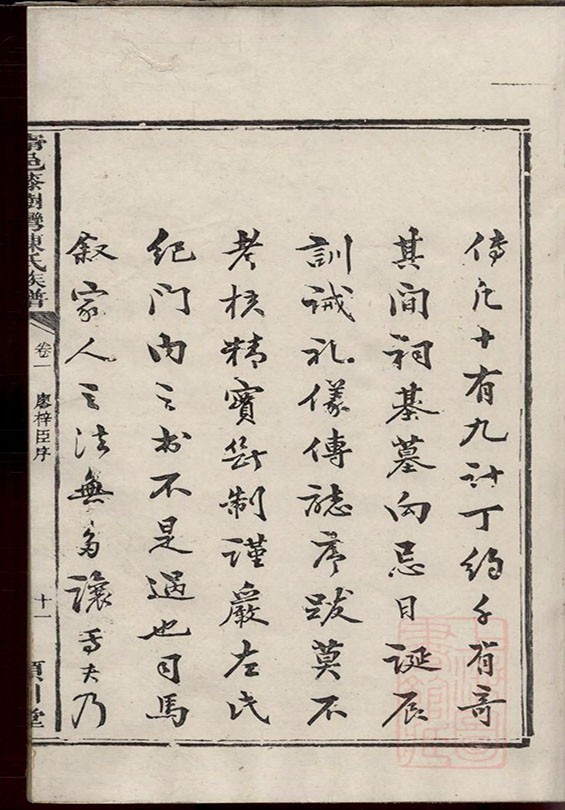 傳凡十有九計丁約千有奇
其間祠基墓向忌日誕辰
訓誡礼儀傳誌序跋莫不
考核精實體制謹嚴左氏
紀門內言於不是過也司馬
叙家人之法無多讓焉夫乃
甯邑漆樹灣陳氏族譜
卷一
廖梓臣序
十一
潁川堂